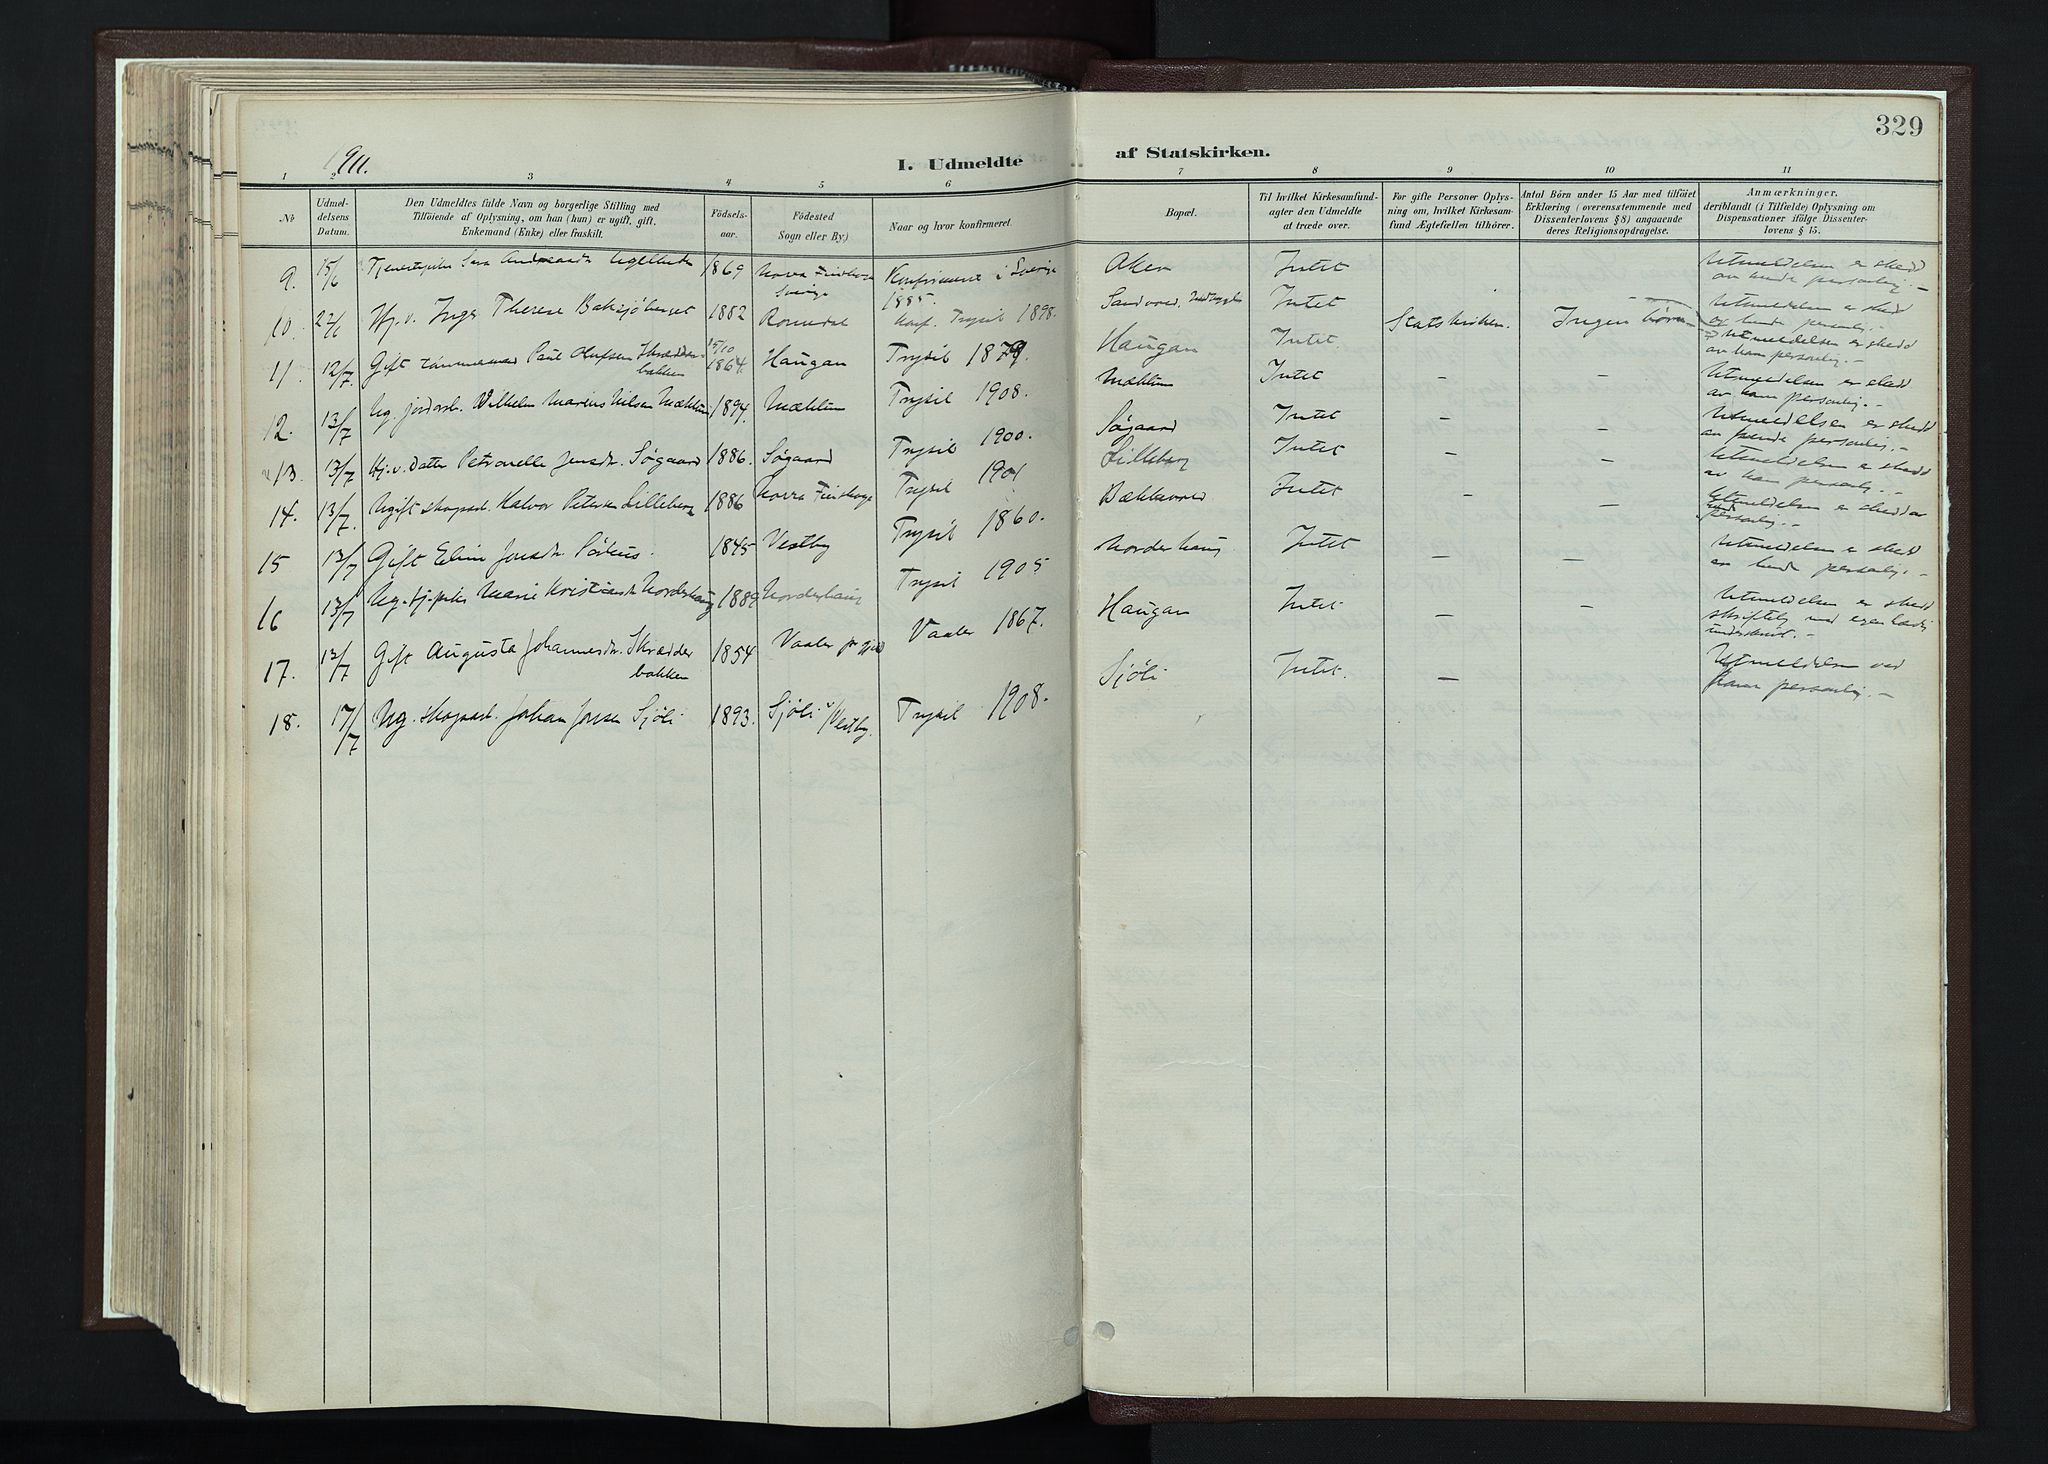 329
1911.
I. Udmeldte af Statskirken.
1 2 3 4 5 6 7 8 9 10 11
No
Udmel-
delsens
Datum.
Den Udmeldtes fulde Navn og borgerlige Stilling med
Tilföiende af Oplysning, om han (hun) er ugift, gift,
Enkemand (Enke) eller fraskilt.
Födsels-
aar.
Födested
Sogn eller By.)
Naar og hvor konfirmeret.
Bopæl.
Til hvilket Kirkesamfund-
agter den Udmeldte
at træde over.
For gifte Personer Oplys-
ning om, hvilket Kirkesam-
fund Ægtefællen tilhörer.
Antal Börn under 15 Aar med tilföiet
Erklæring (overensstemmende med
Dissenterlovens § 8) angaaende
deres Religionsopdragelse.
Anmærkninger,
deriblandt (i Tilfælde) Oplysning om
Dispensationer ifölge Dissenter-
lovens § 15.
9. 15/6 1869 Sverige Konfirmeret i Sverige 1885. Aker Intet
Utmeldelsen er skedd
av hende personlig. -
10. 22/6 Hj. v. Inger Therese 1882 Romedal Konf. Trysil 1898. Intet
Utmeldelsen er skedd
av hende personlig. -
11. 12/7 Gift tømmermand Paul Olufsen Skrædder-
bakken 15/10 1864. Haugan Trysil 1879 Haugan Intet. Statskirken. Ingen børn
Utmeldelsen er skedd
av ham personlig. -
12. 13/7 Ug. jordarb. Wilhelm Marius Nilsen Mæhlum 1894. Mæhlum Trysil 1908. Mæhlum Intet - -
Utmeldelsen er skedd
av ham personlig. -
13. 13/7 Hj. v. datter Petronelle Jensdr. Søgaard 1886. Søgaard Trysil 1900. Søgaard Intet - -
Utmeldelsen er skedd
av hende personlig. -
14. 13/7. Ugift skogsarb. Halvor Petersen Lilleberg 1886 Trysil 1901 Lilleberg Intet - -
Utmeldelsen er skedd
av ham personlig. -
15 13/7 Gift Eline Jensdr. 1845 Vestby Trysil 1860. Bækkevold Intet - -
Utmeldelsen er skedd av
hende personlig. -
16 13/7 Ug. tj. pike Marie Kristiansdr. Norderhaug 1889 Norderhaug Trysil 1905 Norderhaug Intet - -
Utmeldelsen er skedd
av hende personlig. -
17. 13/7 Gift Augusta Johannesdr. Skrædder
bakken 1854 Vaaler Vaaler 1867. Haugan Intet - -
Utmeldelsen er skedd
skriftelig med egenhændig
underskrift. -
18. 17/7 Ug. skogsarb. Johan Jonsen Sjöli 1893. Sjöli i Vestby. Trysil 1908. Sjöli Intet. -
Utmeldelsen ved
ham personlig. -